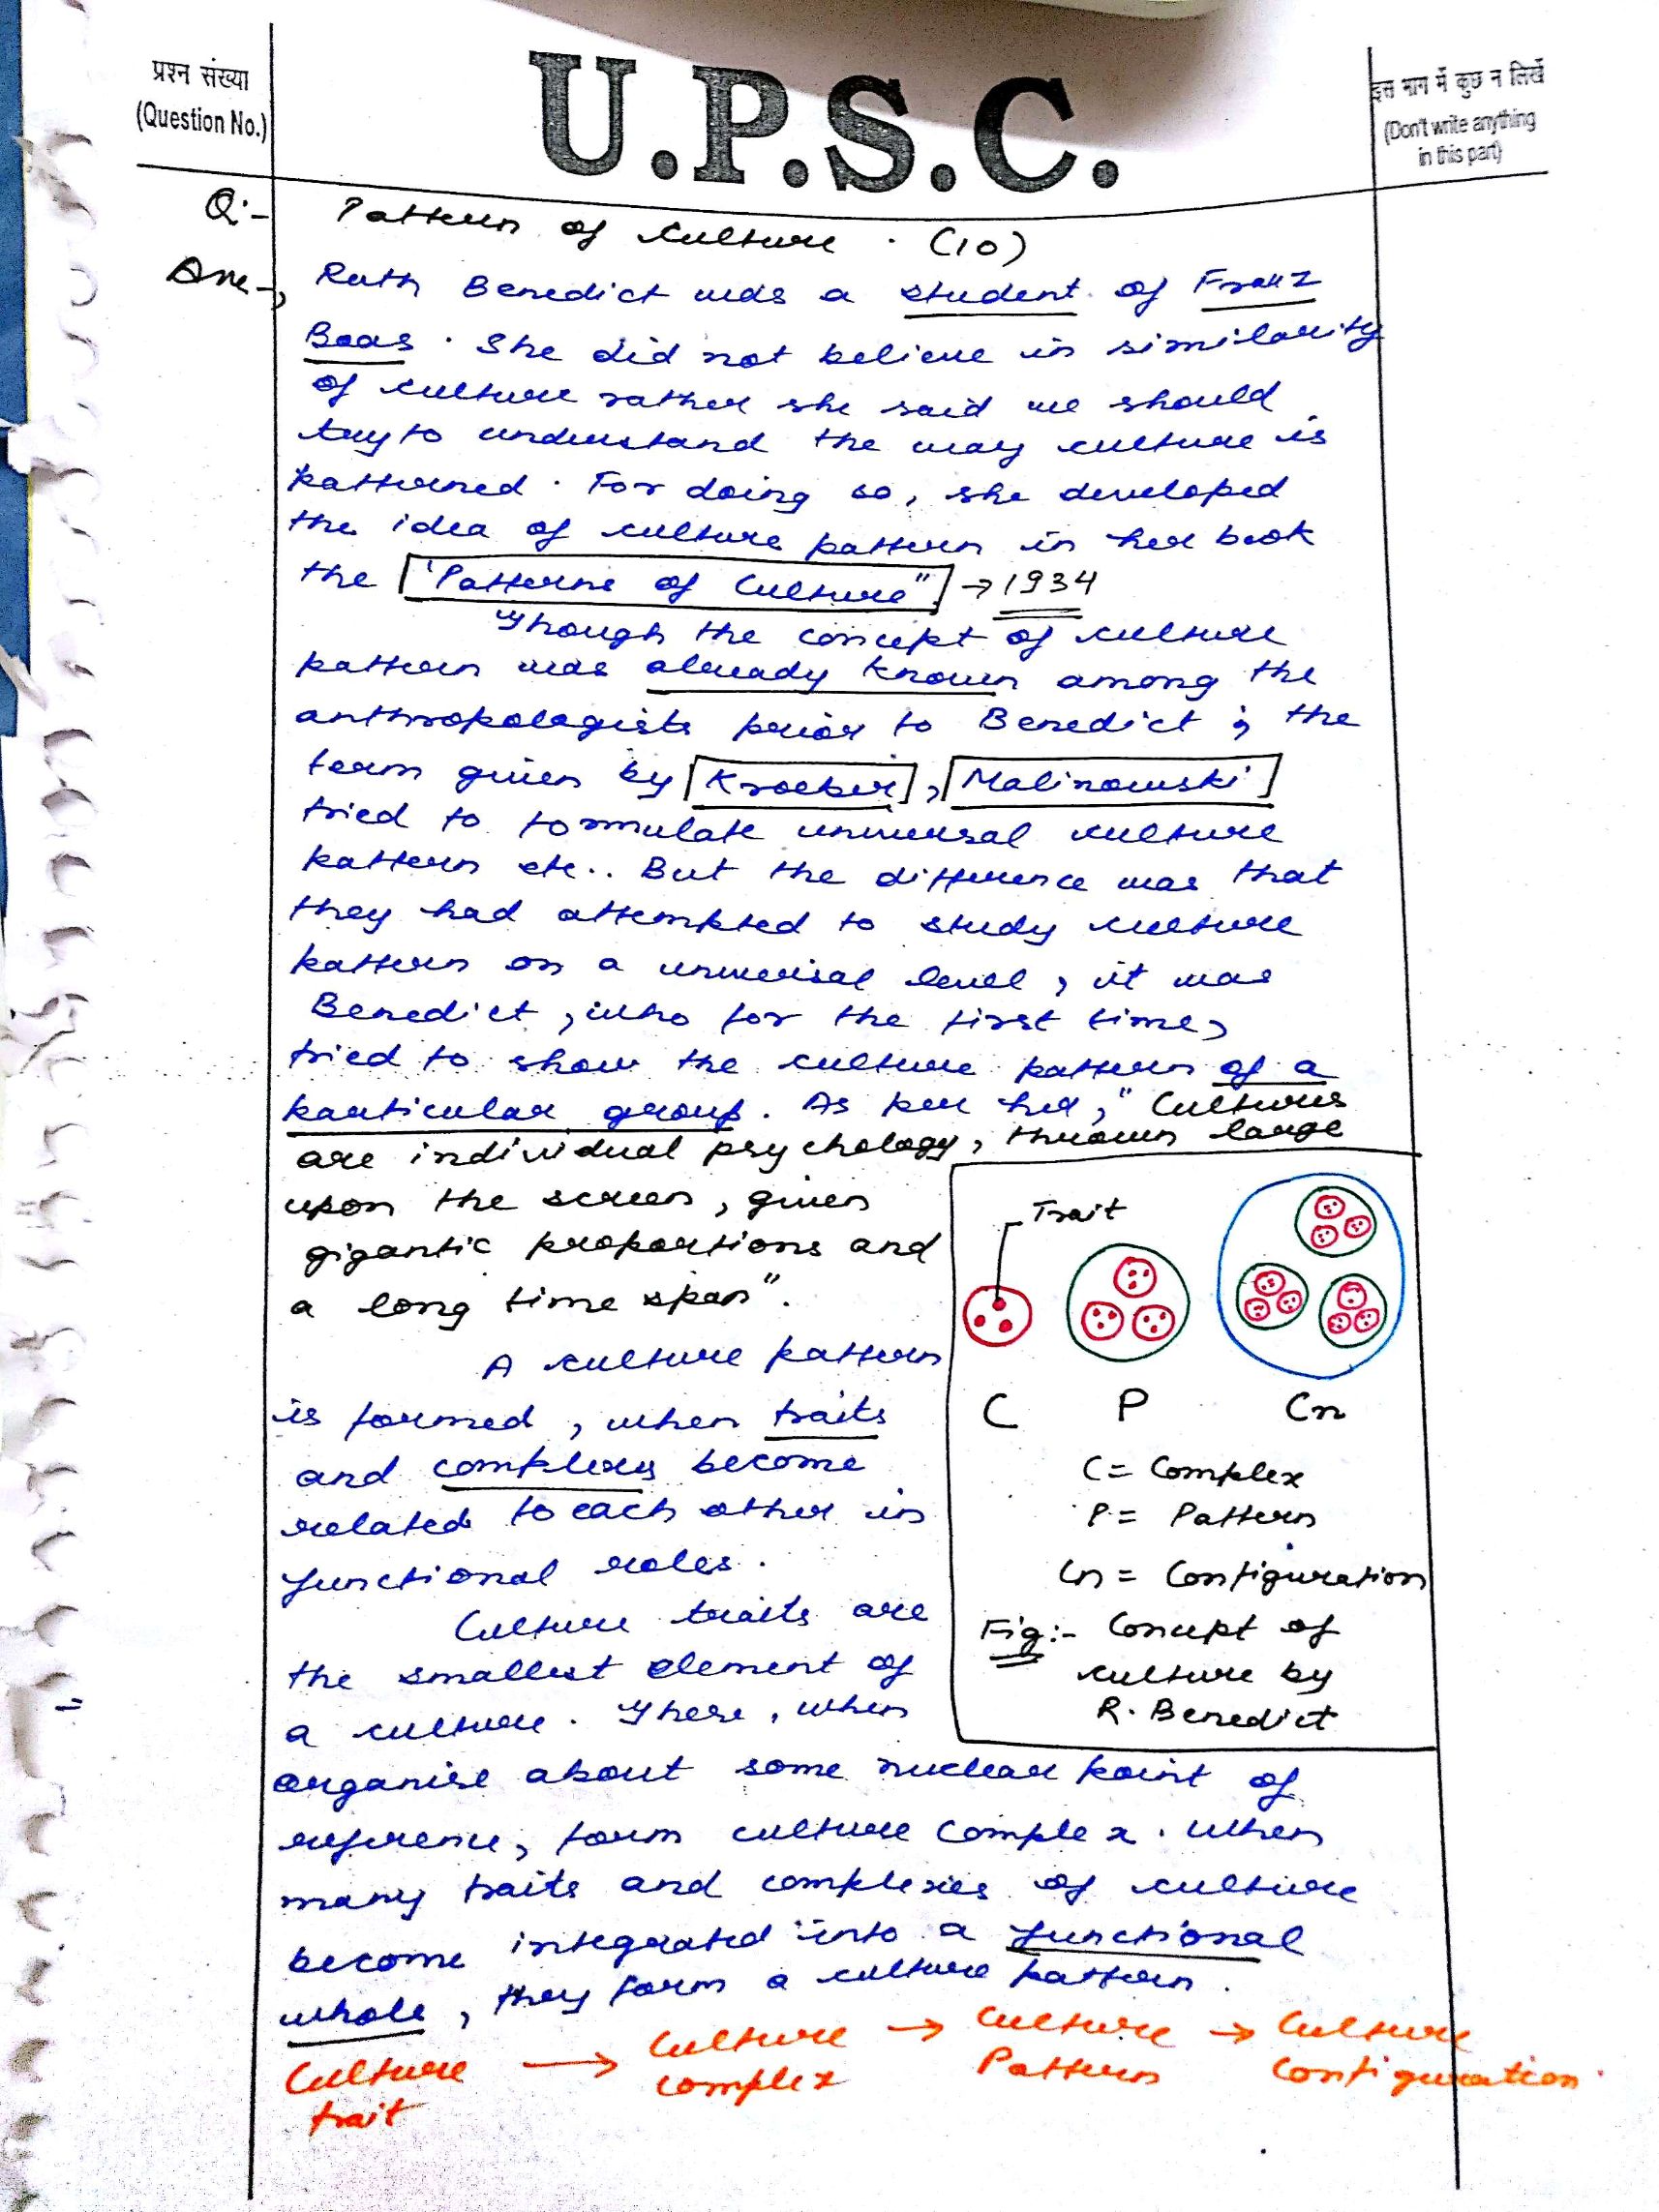 प्रश्न संख्या
(Question No.)
U.P.S.C.
इस भाग में कुछ न लिखें
(Don't write anything
in this part)
Q:- Pattern of culture. (10)
Ans-, Ruth Benedict was a student of Franz
Boas. She did not believe in similarity
of culture rather she said we should
try to understand the way culture is
patterned. For doing so, she developed
the idea of culture pattern in her book
the "Patterns of Culture" → 1934
Though the concept of culture
pattern was already known among the
anthropologists prior to Benedict ; the
term given by Kroeber, Malinowski
tried to formulate universal culture
pattern etc.. But the difference was that
they had attempted to study culture
pattern on a universal level, it was
Benedict, who for the first time,
tried to show the culture pattern of a
particular group. As per her, "Cultures
are individual psychology, thrown large
upon the screen, given
gigantic proportions and
a long time span".
A culture pattern
is formed, when traits
and complexes become
related to each other in
functional roles.
Culture traits are
the smallest element of
a culture. These, when
organise about some nuclear point of
reference, form culture complex. When
many traits and complexes of culture
become integrated into a functional
whole, they form a culture pattern.
Trait
C P Cn
C = Complex
P = Pattern
Cn = Configuration
Fig:- Concept of
culture by
R. Benedict
Culture trait → Culture complex → Culture Pattern → Culture Configuration.